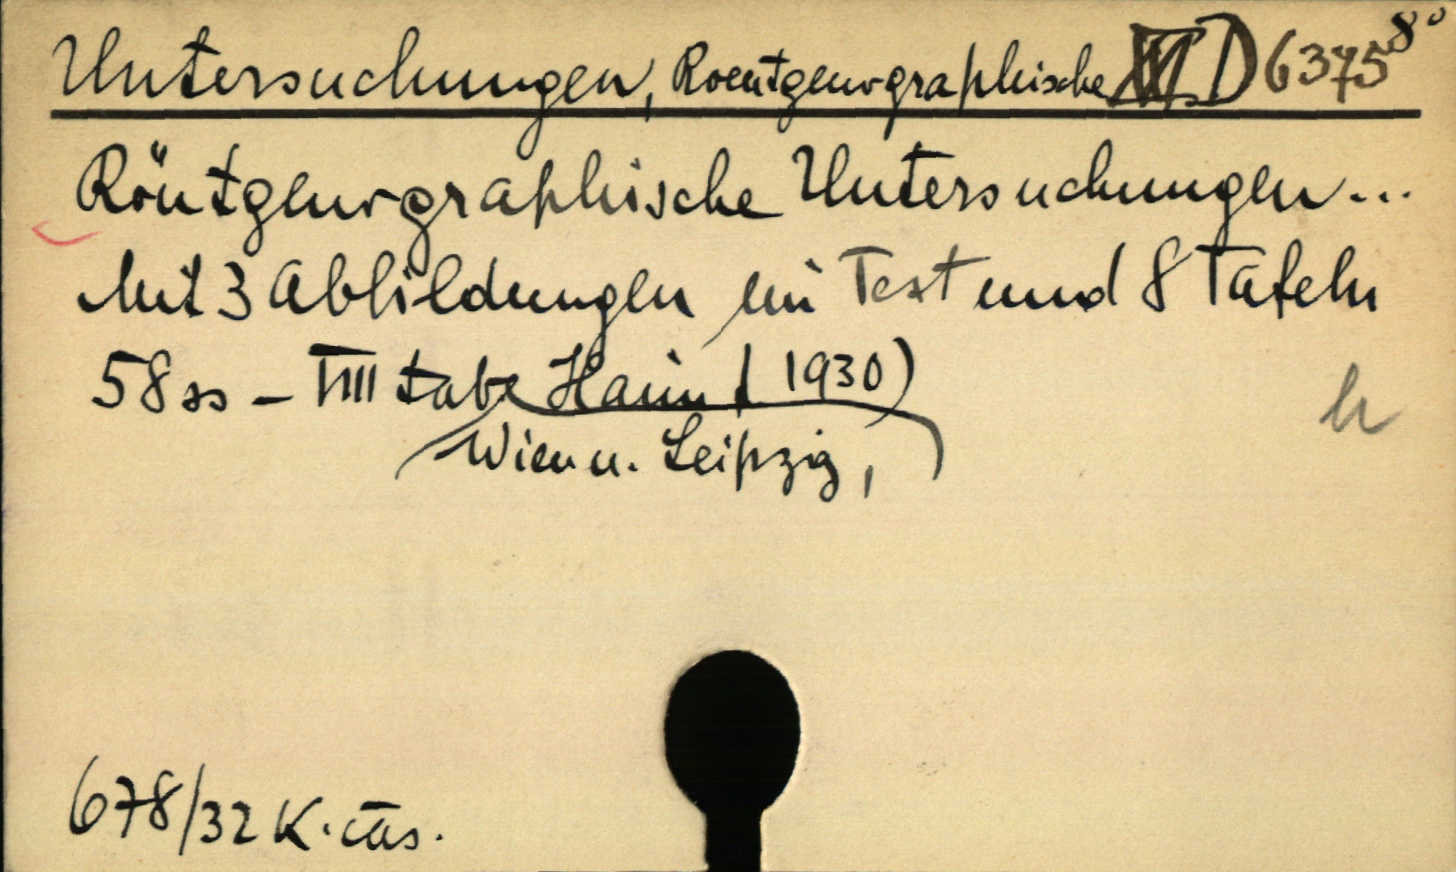 Untersuchungen, Roentgenographische D 6375 8°
Röntgenographische Untersuchungen...
Mit 3 Abbildungen im Text und 8 Tafeln
58 ss - VIII tabe Haim (1930)
Wien u. Leipzig,
h
678/32 K.